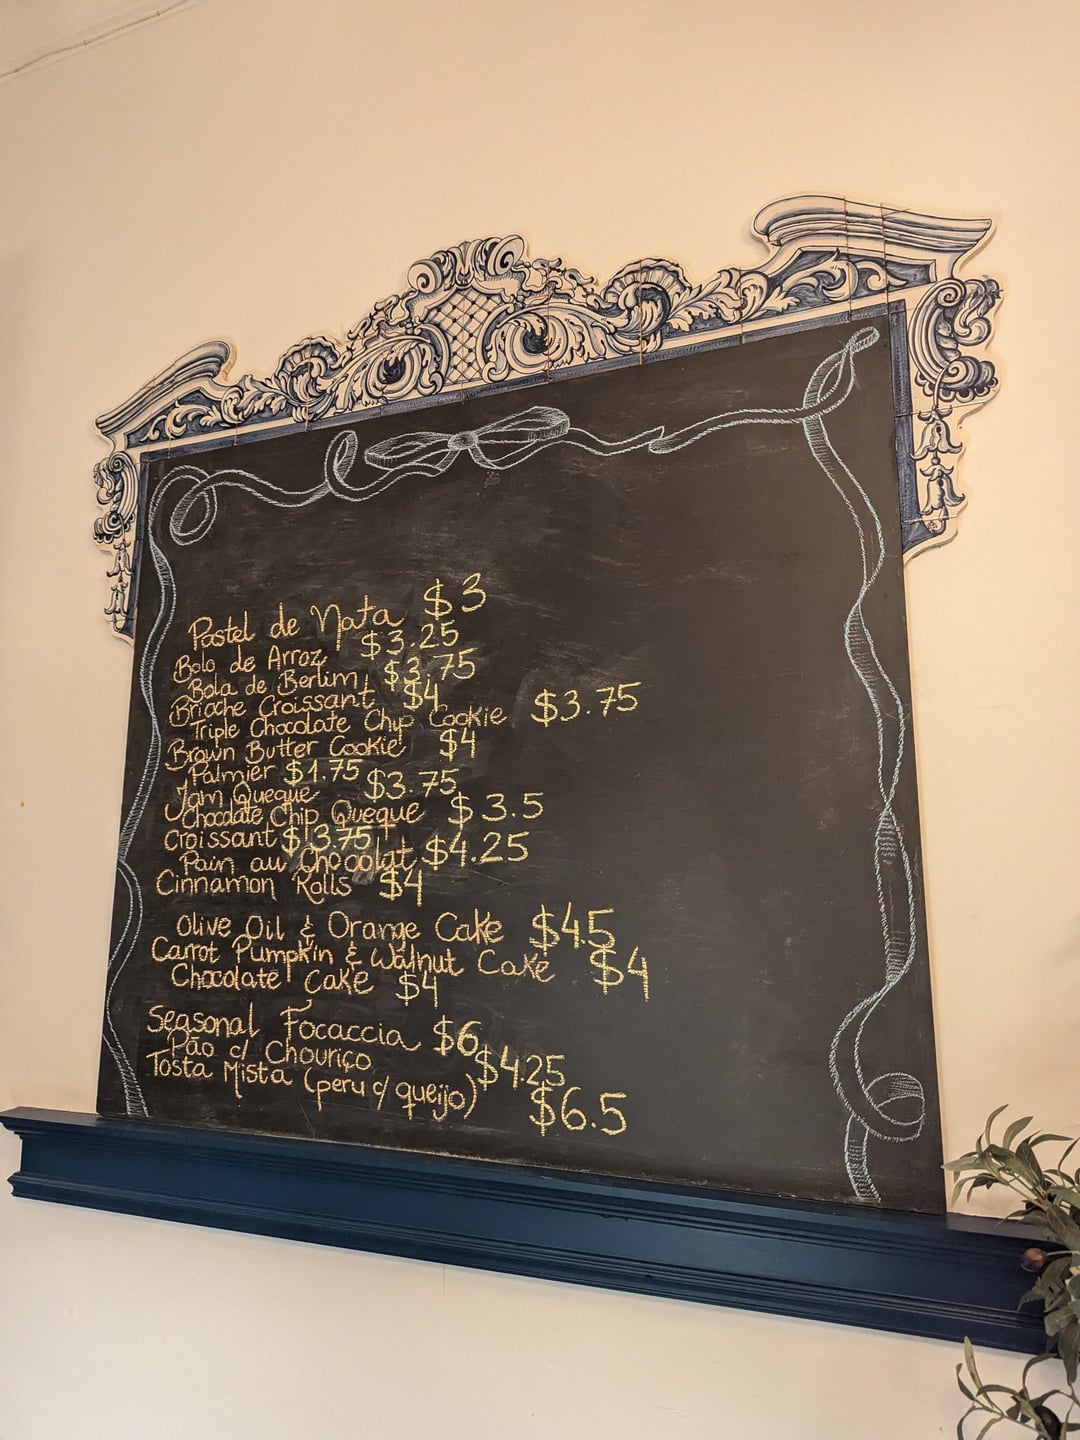 Pastel de Nata $3
Bolo de Arroz $3.25
Bola de Berlim $3.75
Brioche Croissant $4
Triple Chocolate Chip Cookie $3.75
Brown Butter Cookie $4
Palmier $1.75
Jam Queque $3.75
Chocolate Chip Queque $3.5
Croissant $3.75
Pain au Chocolat $4.25
Cinnamon Rolls $4
Olive Oil & Orange Cake $4.5
Carrot Pumpkin & Walnut Cake $4
Chocolate Cake $4
Seasonal Focaccia $6
Pão c/ Chouriço $4.25
Tosta Mista (peru c/ queijo) $6.5